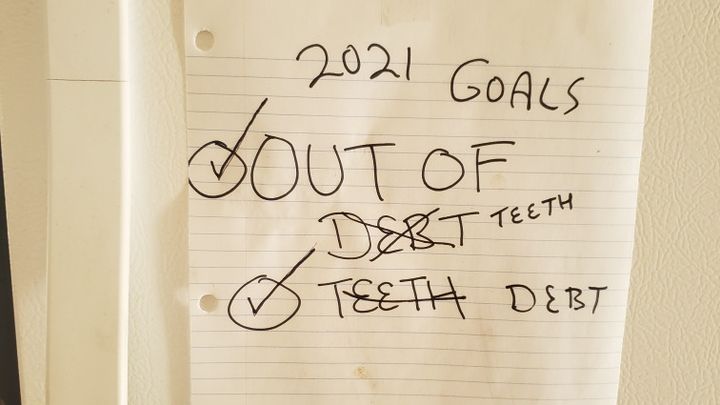 2021 GOALS
OUT OF
DEBT TEETH
TEETH DEBT